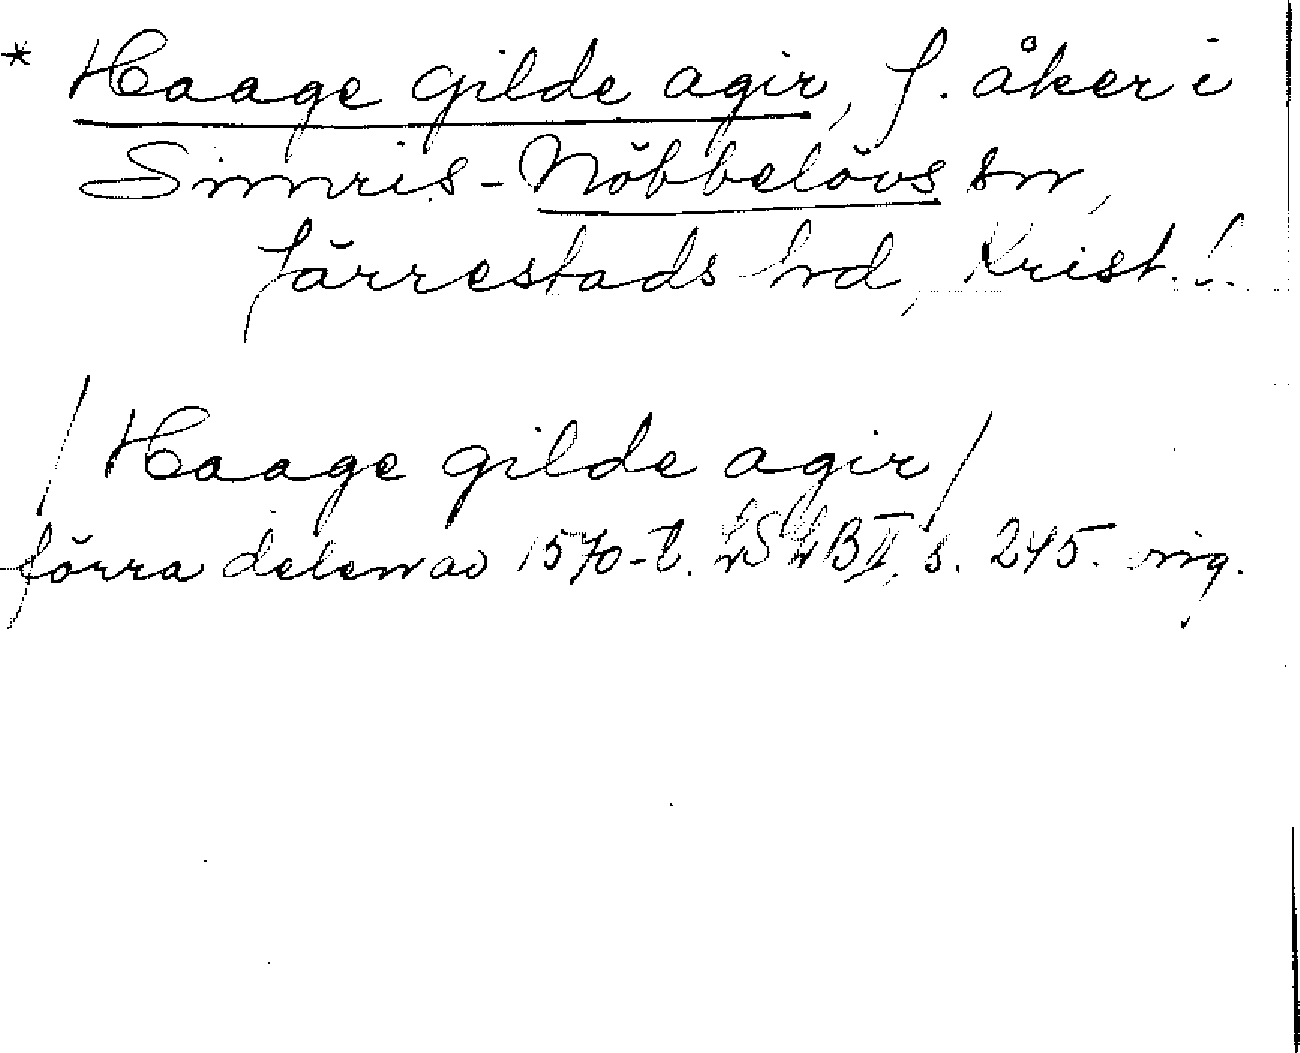 * Haage gilde agir, f. åker i
Simris-Nöbbelövs sn,
Järrestads hd, Krist. l.
/Haage gilde agir/
förra delen av 1570-t. LSLB II, s. 245. orig.